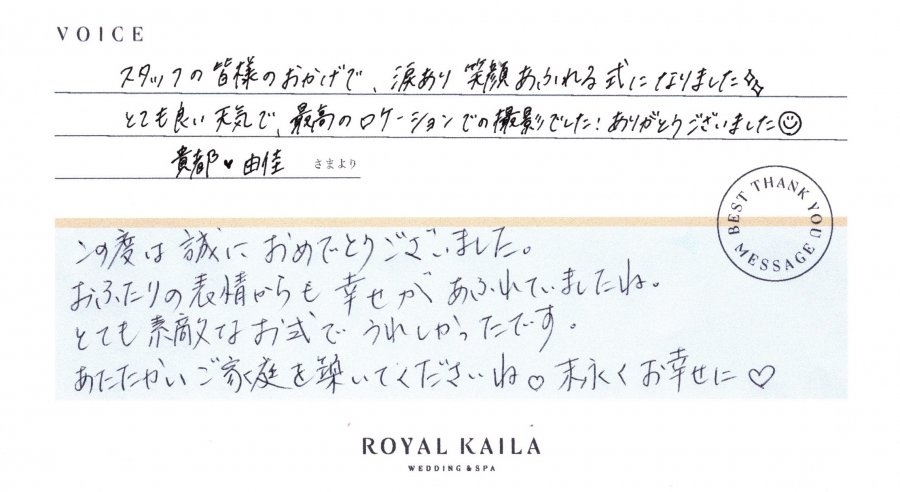 VOICE
スタッフの皆様のおかげで、涙あり笑顔あふれる式になりました
とても良い天気で、最高のロケーションでの撮影でした！ありがとうございました
貴都♥由佳 さまより
BEST THANK YOU MESSAGE
この度は誠におめでとうございました。
おふたりの表情からも幸せがあふれていましたね。
とても素敵なお式でうれしかったです。
あたたかいご家庭を築いてくださいね♡末永くお幸せに♡
ROYAL KAILA
WEDDING & SPA